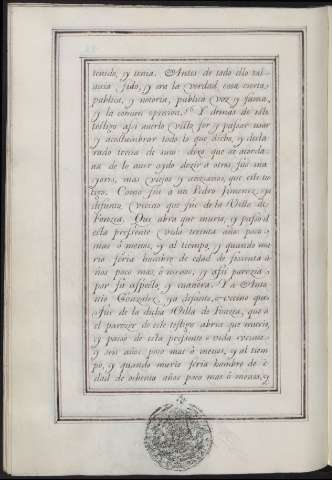 tenido, y tenia. Antes de todo ello tal
avia sido, y era la verdad, cosa cierta,
publica, y notoria, publica voz y fama,
y la comun opinion. Y demas de este
testigo assi averlo visto ser y passar usar
y acostumbrar todo lo que dicho, y decla
rado tenia de suso dixo que se acorda
va de lo aver oydo dezir à otros sus ma
yores, mas viejos y ancianos, que este tes
tigo. Como fue à un Pedro Ximenez, ya
difunto, vecino que fue de la Villa de
Que abra que murio, y passò de
esta presente vida treinta años poco
mas ò menos, y al tiempo, y quando mu
rio seria hombre de edad de sesenta a
ños poco mas ò menos, y assi parezia
por su aspecto, y manera. Y à Anto
nio Gonzalez ya difunto, vecino que
fue de la dicha Villa de que à
el parezer de este testigo abria que murio,
y passò de esta presente vida veinte
y seis años poco mas ò menos, y al tiem
po, y quando murio seria hombre de e
dad de ochenta años poco mas ò menos, y